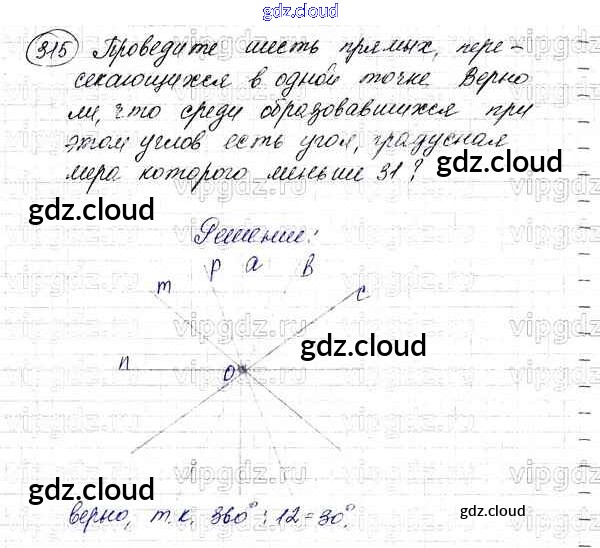 gdz.cloud
315 Проведите шесть прямых, пере-
секающихся в одной точке Верно
ли, что среди образовавшихся при
этом углов есть угол, градусная
мера которого меньше 31?
gdz.cloud
gdz.cloud
Решение:
m p a B c
n O
gdz.cloud
верно, т.к. 360° : 12 = 30°.
gdz.cloud
gdz.cloud
vipgdz.net